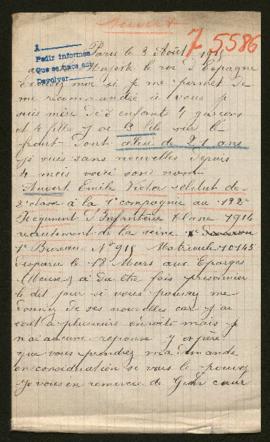 75586
A
Pedir informes
Que se haga así
Devolver
Paris le 3 Août
Majesté le roi d'Espagne
excusez moi si je me permet de
me recommandé à Vous je
suis mère de 8 enfants 4 garçons
et 4 filles j'ai un fils sur le
front dont âgé de 21 ans
je suis sans nouvelles depuis
4 mois voici son nom
Auvert Emile Victor soldat de
2e classe à la 1e compagnie au 132
Régiment d'Infanterie classe 1914
recrutement de la seine
1e Bureau N° 918 Matricule 10145
disparu le 18 Mars aux Eparges
(Meuse) a du être fais prisonnier
le dit jour si vous pouvez me
donner de ses nouvelles car j'ai
écrit à plusieurs endroits mais je
n'ai aucune reponse j'espère
que vous prendrez ma demande
en consideration si vous le pouvez
Je vous en remercie de Grand cœur